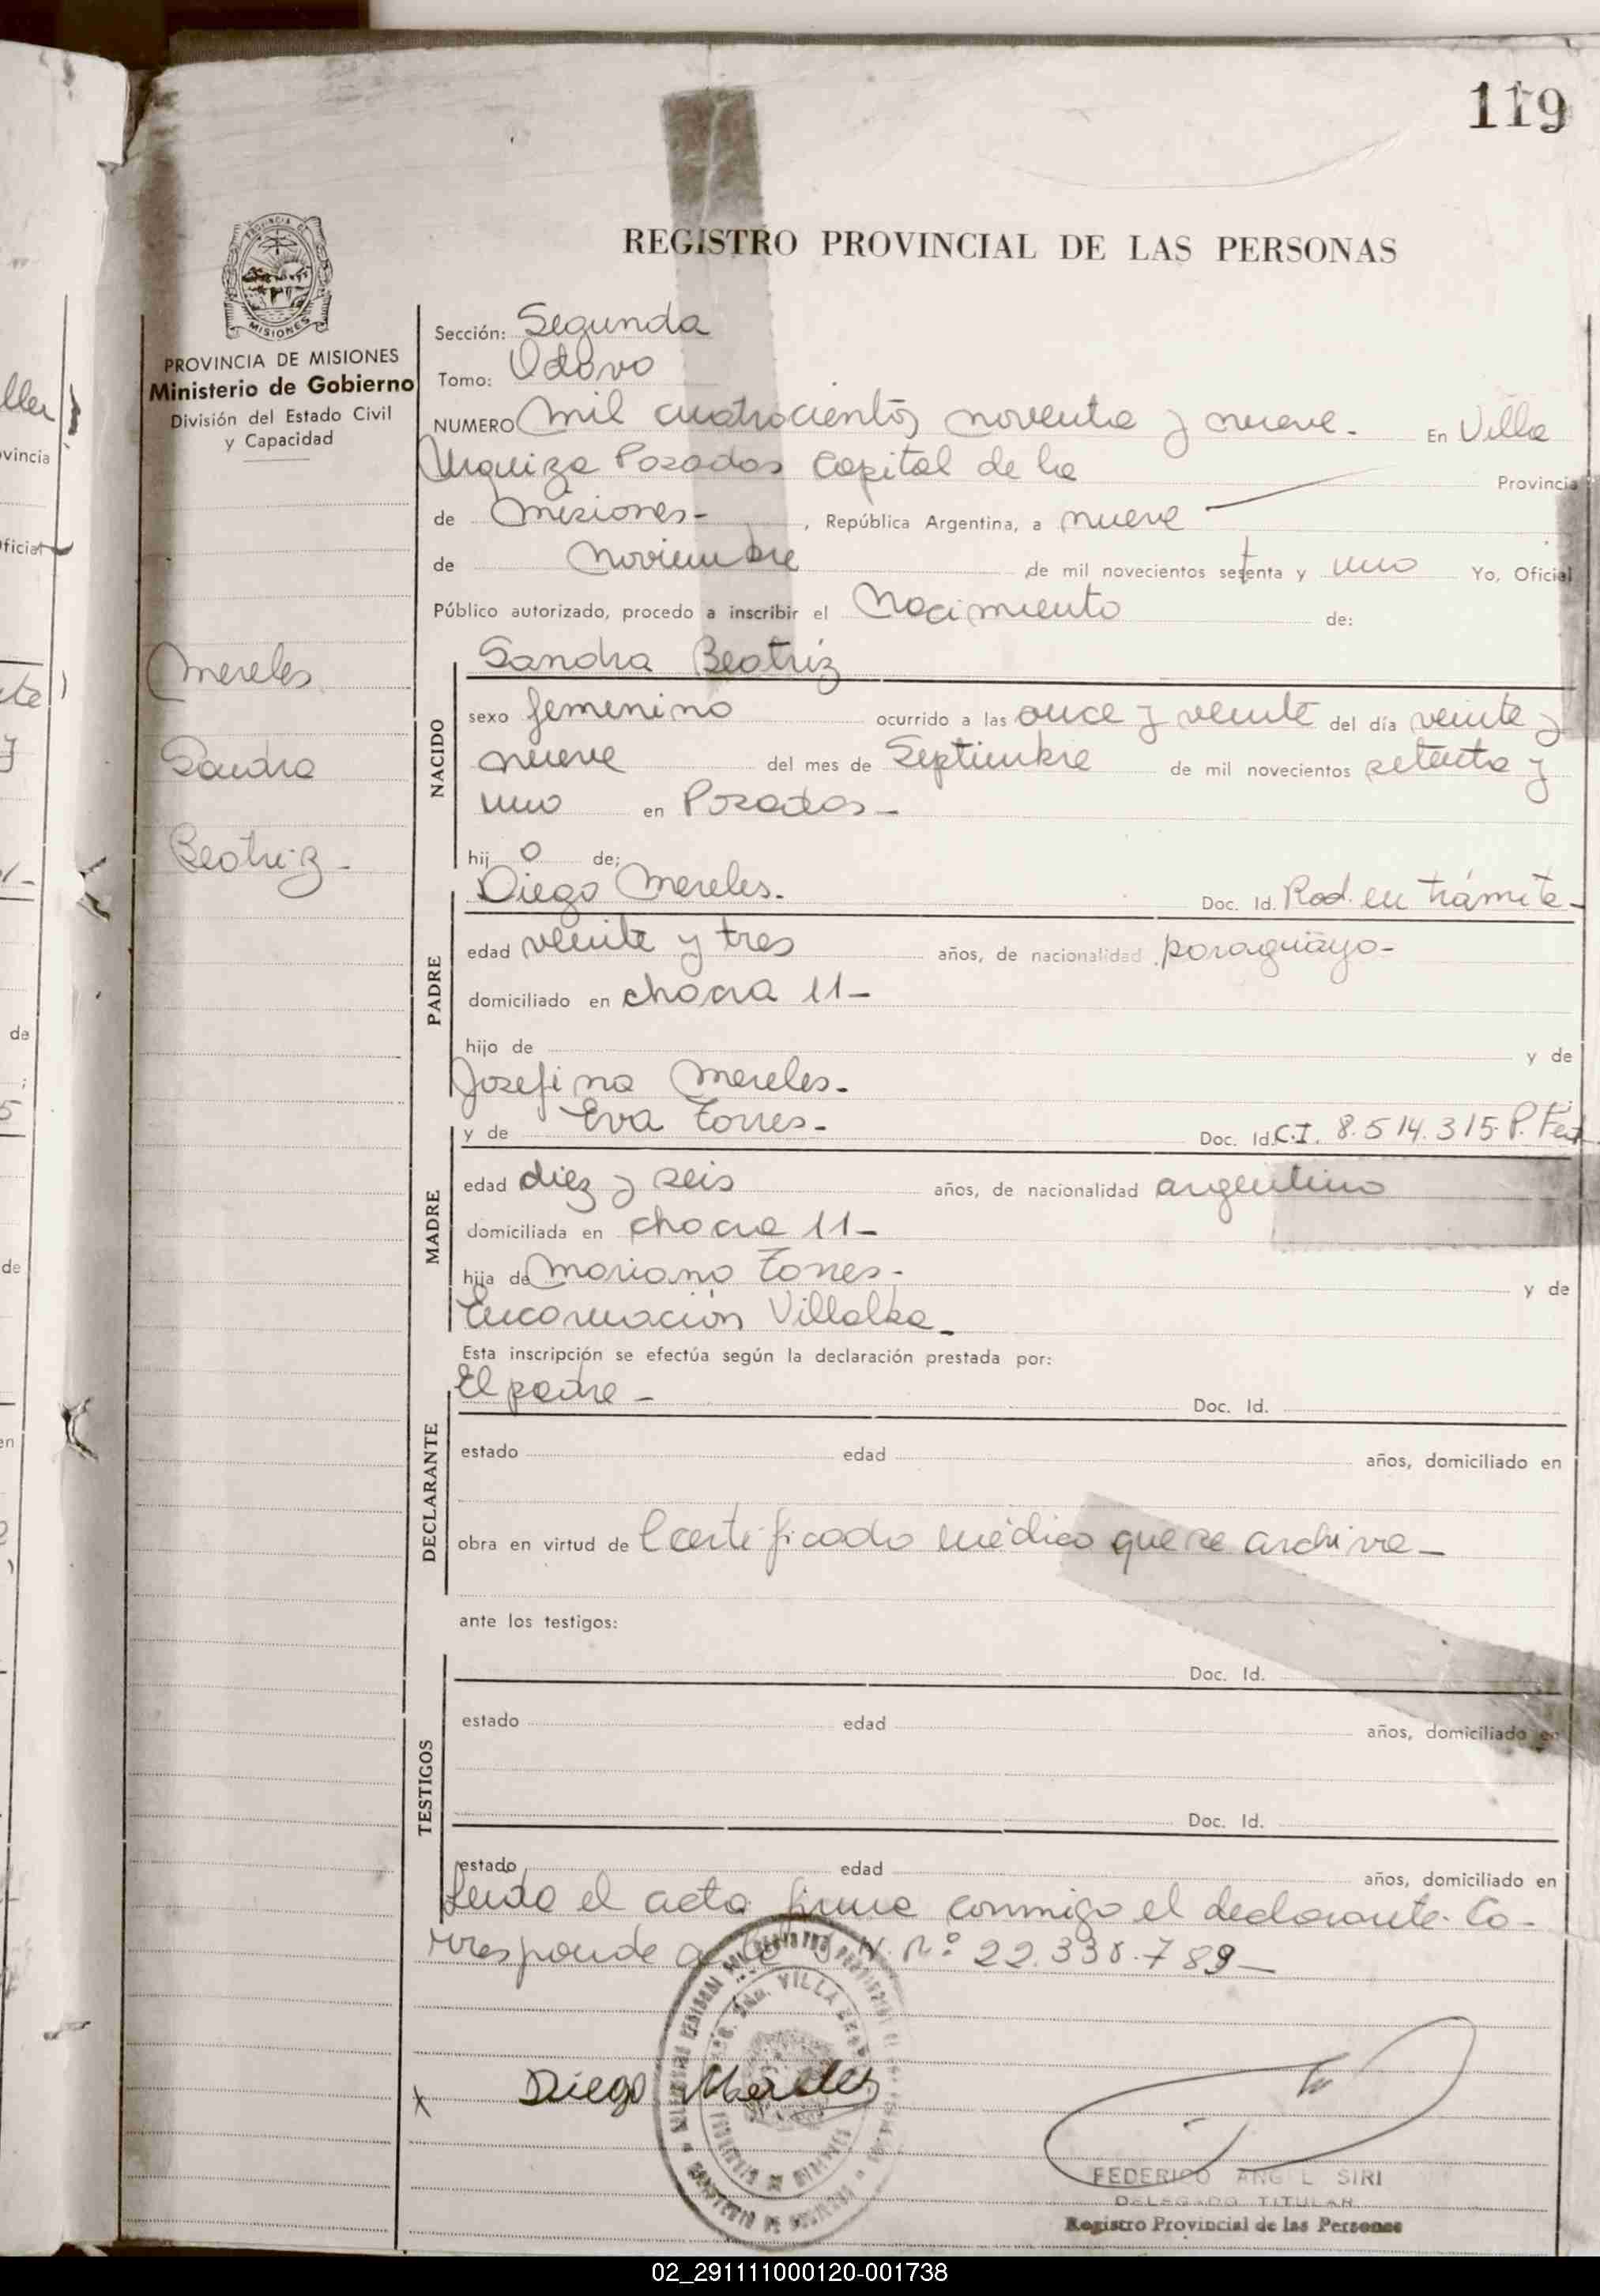 119
REGISTRO PROVINCIAL DE LAS PERSONAS
PROVINCIA DE MISIONES
Ministerio de Gobierno
División del Estado Civil
y Capacidad
Mereles
Sandra
Beatriz -
Sección: Segunda
Tomo: Octavo
NUMERO Mil cuatrocientos noventa y nueve. - En Villa
Urquiza Posadas Capital de la Provincia
de Misiones - , República Argentina, a nueve
de Noviembre de mil novecientos setenta y uno Yo, Oficial
Público autorizado, procedo a inscribir el Nacimiento de:
Sandra Beatriz
NACIDO
sexo femenino ocurrido a las once y veinte del día veinte y
nueve del mes de Septiembre de mil novecientos setenta y
uno en Posadas -
hij a de:
Diego Mereles. Doc. Id. Rad. en trámite -
PADRE
edad veinte y tres años, de nacionalidad paraguayo -
domiciliado en chacra 11 -
hijo de y de
Josefina Mereles -
y de Eva Torres - Doc. Id. C.I. 8.514.315 - P. Fed
MADRE
edad diez y seis años, de nacionalidad argentina
domiciliada en chacra 11 -
hija de Mariano Torres - y de
Encarnación Villalba -
Esta inscripción se efectúa según la declaración prestada por:
El padre - Doc. Id.
DECLARANTE
estado edad años, domiciliado en
obra en virtud de Certificado médico que se archiva -
ante los testigos:
Doc. Id.
TESTIGOS
estado edad años, domiciliado en
Doc. Id.
estado edad años, domiciliado en
Leida el acta firma conmigo el declarante. Co-
rresponde a N. Nº 22.338.789 -
x Diego Mereles
FEDERICO ANGEL SIRI
DELEGADO TITULAR
Registro Provincial de las Personas
02_291111000120-001738